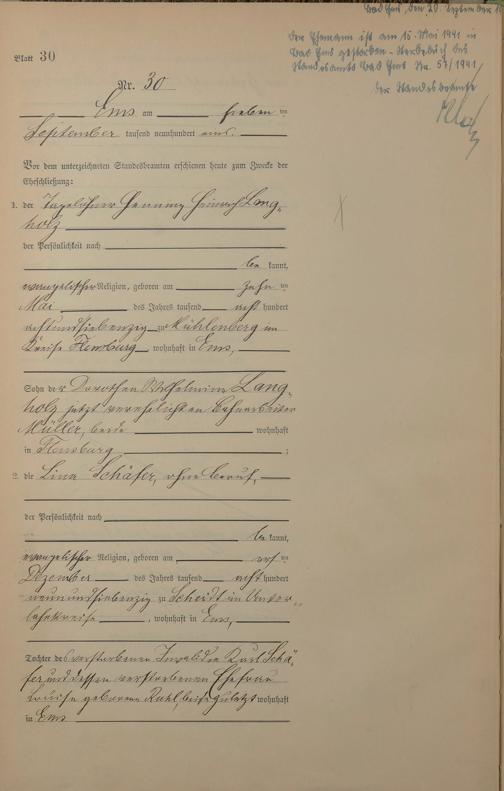 Bad Ems, den 20. September
Der Ehemann ist am 15. Mai 1941 in
Bad Ems gestorben - Sterbebuch des
Standesamts Bad Ems Nr. 57/1941
Der Standesbeamte
Blatt 30
Nr. 30
Ems am sieben ten
September tausend neunhundert eins.
Vor dem unterzeichneten Standesbeamten erschienen heute zum Zwecke der
Eheschließung:
1. der Tagelöhner Henning Heinrich Lang-
holz
der Persönlichkeit nach
be kannt,
evangelischer Religion, geboren am zehn ten
Mai des Jahres tausend acht hundert
achtundsiebenzig zu Kühlenberg im
Kreise Flensburg, wohnhaft in Ems,
Sohn der Dorothea Wilhelmine Lang-
holz jetzt verehelichten Bahnarbeiter
Müller, beide wohnhaft
in Flensburg ;
2. die Lina Schäfer, ohne Beruf,
der Persönlichkeit nach
be kannt,
evangelischer Religion, geboren am ten
Dezember des Jahres tausend acht hundert
neunundsiebenzig zu Scheidt im Unter-
lahnkreise , wohnhaft in Ems,
Tochter des verstorbenen Invaliden Karl Schä-
fer und dessen verstorbenen Ehefrau
Louise geborenen zuletzt wohnhaft
in Ems